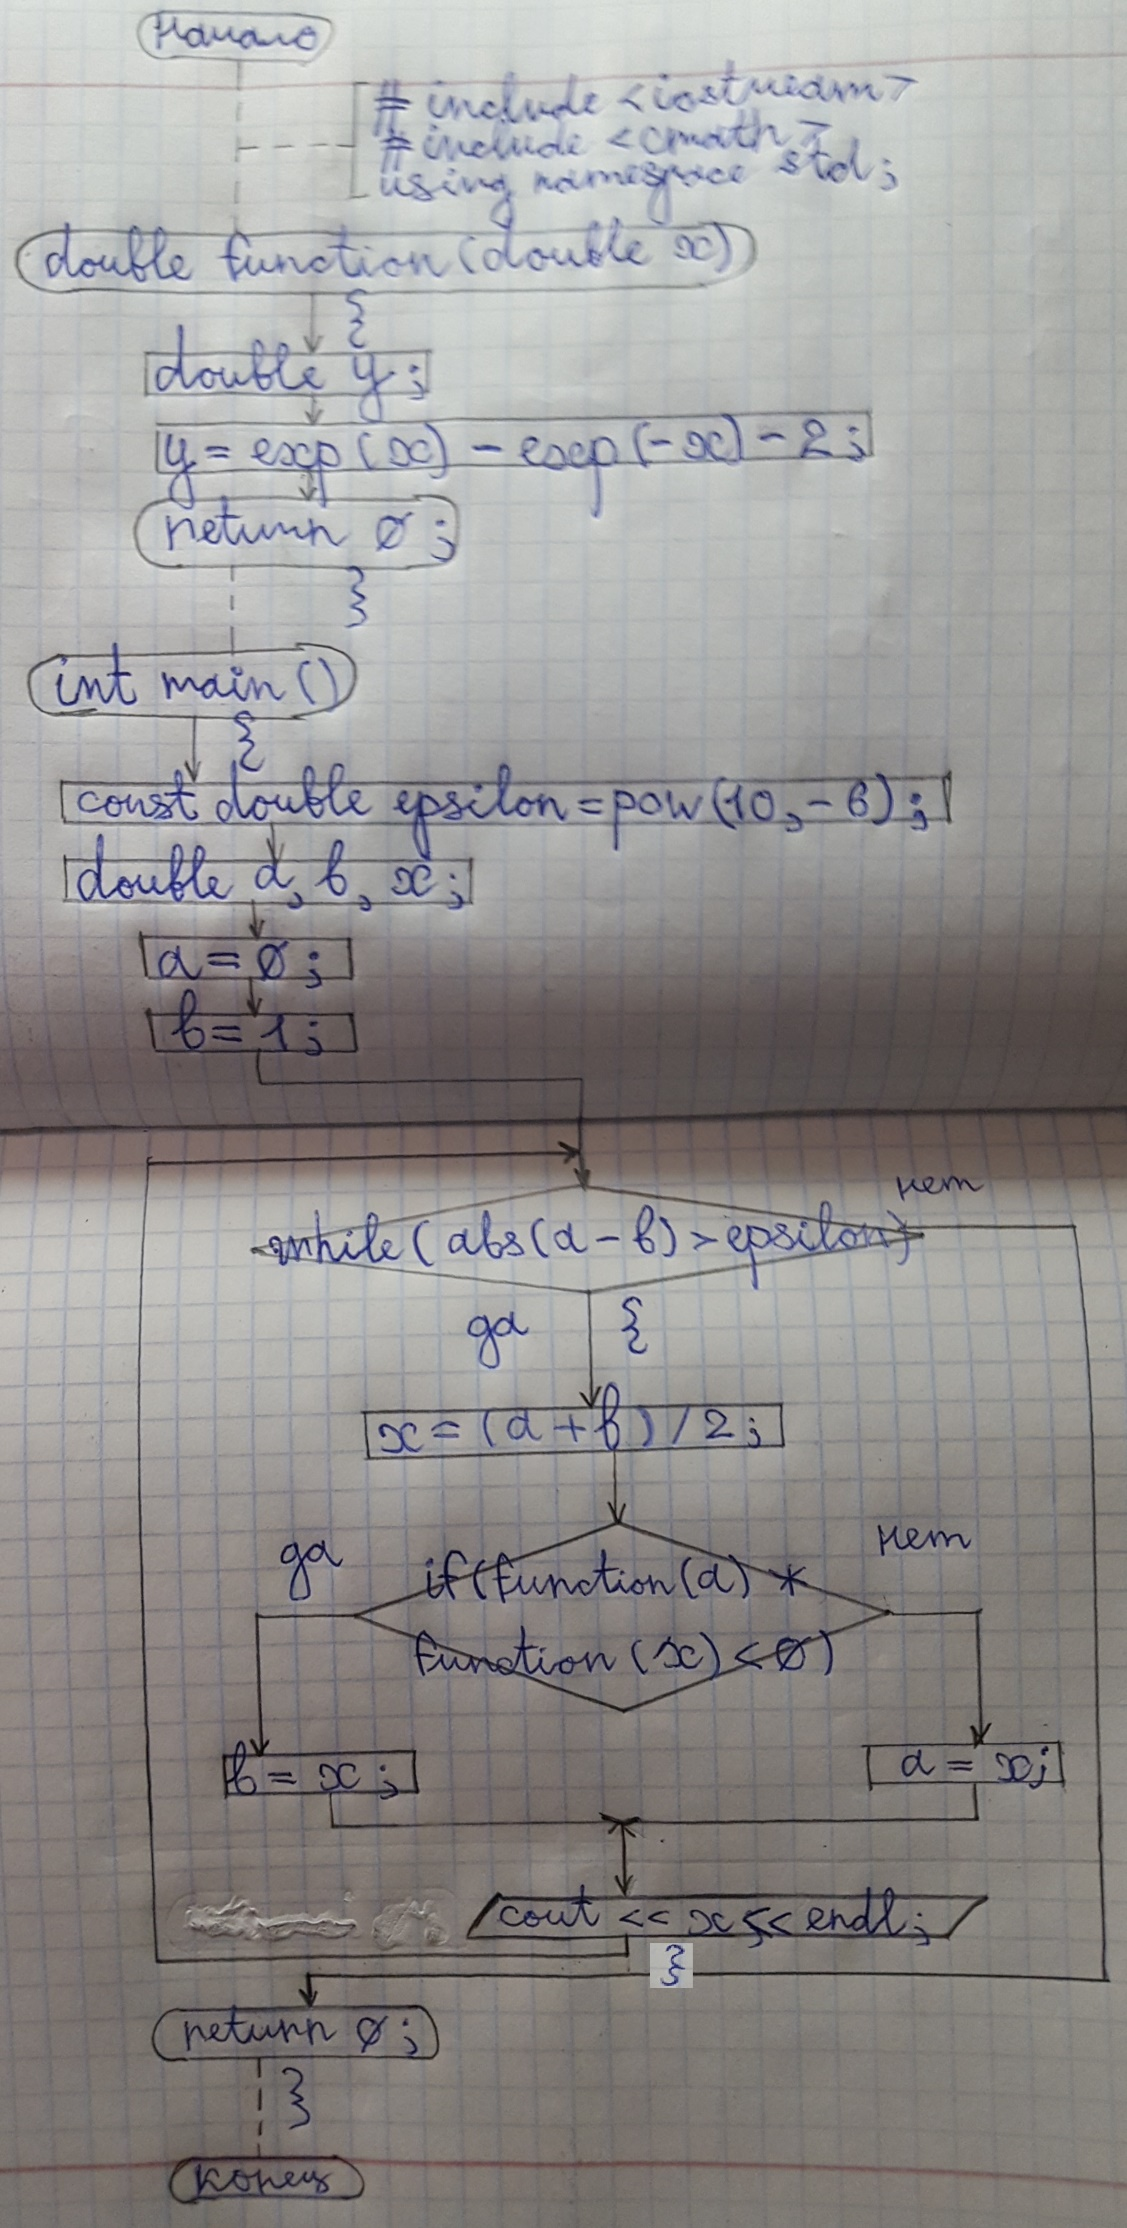 Начало
# include <iostream>
# include <cmath>
using namespace std;
double function(double x)
{
double y;
y = exp(x) - exp(-x) - 2;
return 0;
}
int main()
{
const double epsilon = pow(10, -6);
double a, b, x;
a = 0;
b = 1;
нет
while (abs(a - b) > epsilon)
да {
x = (a + b) / 2;
да нет
if (function(a) *
function(x) < 0)
b = x; a = x;
cout << x << endl;
}
return 0;
}
Конец